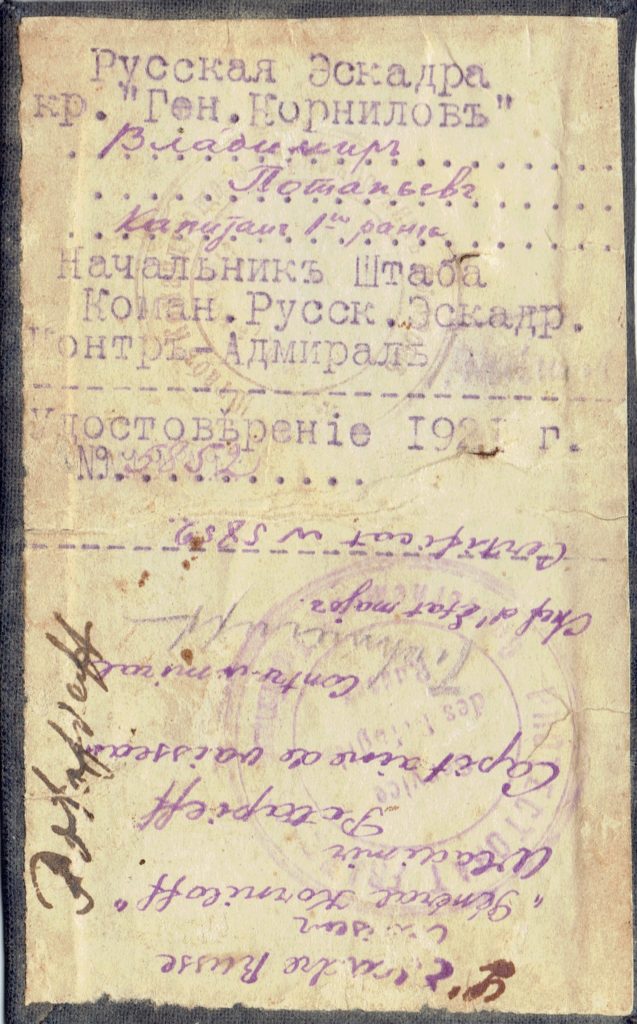 Русская Эскадра
кр. "Ген. Корниловъ"
Владимиръ
Потапьевъ
Капитанъ 1го ранга
Начальникъ Штаба
Коман. Русск. Эскадр.
Контръ-Адмиралъ
Удостовѣреніе 1921 г.
№ 5852
L'Escadre Russe
Croiseur
"Général Korniloff"
Wladimir
Potapieff
Capitaine de vaisseau
Contre-amiral
Chef d'État major.
Certificat N 5852.
Potapieff